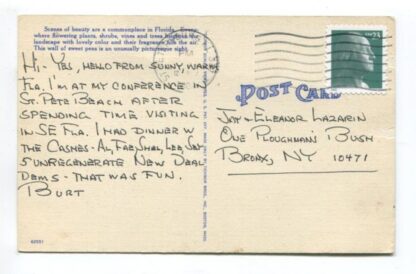 Scenes of beauty are a commonplace in Florida
where flowering plants, shrubs, vines and trees the
landscape with lovely color and their fragrance fills the air.
This wall of sweet peas is an unusually picturesque sight.
Hi- Yes, hello from sunny, warm
Fla. I'm at my conference in
St. Pete Beach after
spending time visiting
in SE Fla. I had dinner w
the - Al, Fae, Lea,
5 unregenerate New Deal
Dems - that was fun.
Burt
POST CARD
Joy + Eleanor Lazarin
One Ploughman's Bush
Bronx, NY 10471